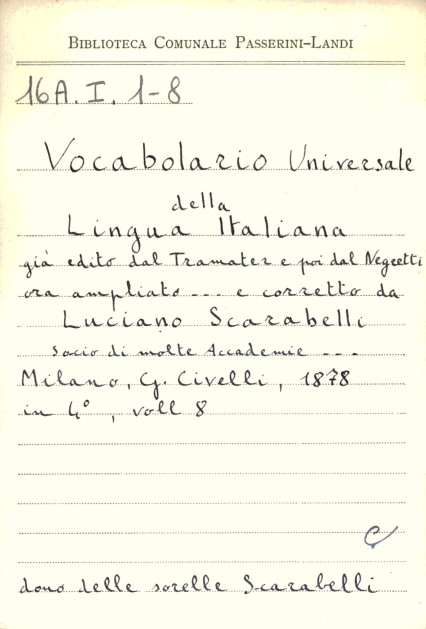 BIBLIOTECA COMUNALE PASSERINI-LANDI
16A. I. 1-8
Vocabolario Universale
della
Lingua Italiana
già edito dal Tramater e poi dal Negretti
ora ampliato --- e corretto da
Luciano Scarabelli
socio di molte Accademie ---
Milano, G. Civelli, 1878
in 4°, voll 8
dono delle sorelle Scarabelli